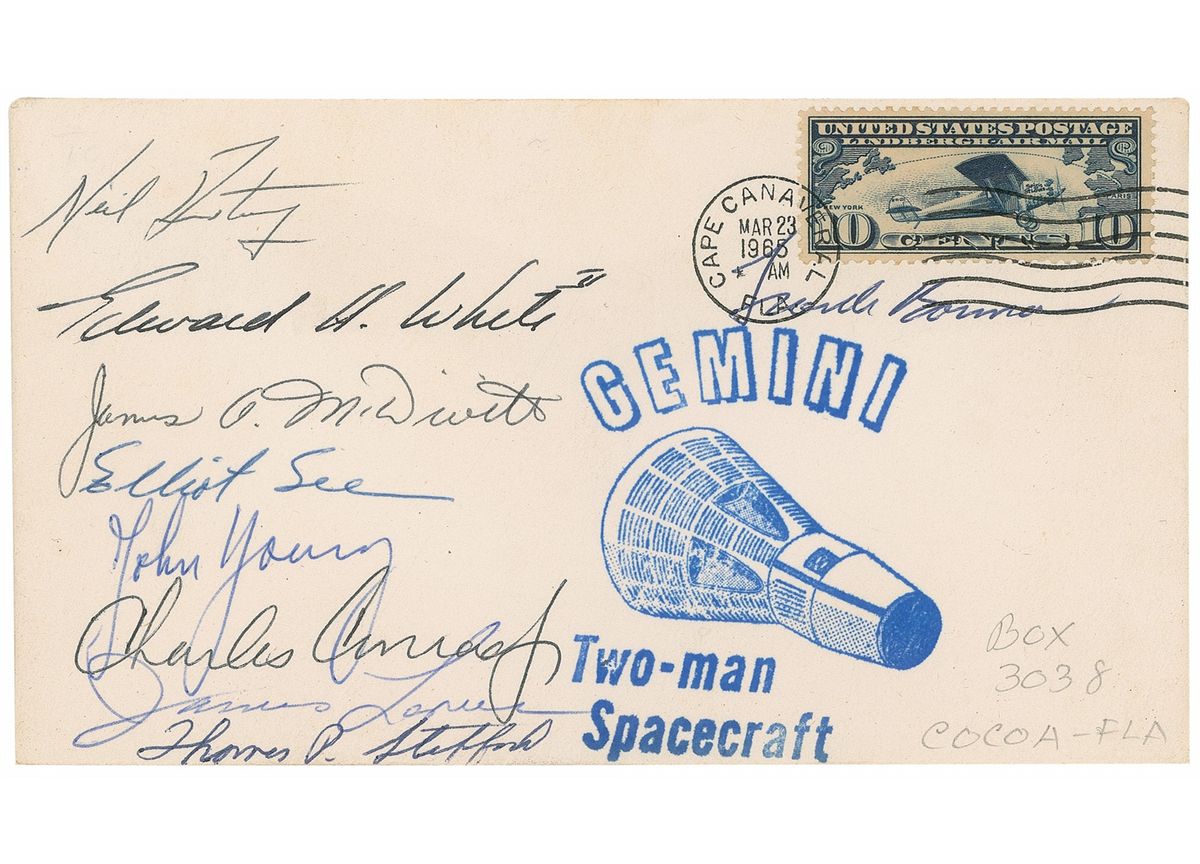 UNITED STATES POSTAGE
LINDBERGH AIR MAIL
NEW YORK
PARIS
10 CENTS 10
CAPE CANAVERAL
MAR 23
1965
AM
FLA.
Neil Armstrong
Edward H. White II
Frank Borman
James A. McDivitt
Elliot See
John Young
Charles Conrad Jr
James Lovell
Thomas P. Stafford
GEMINI
Two-man
Spacecraft
BOX
3038
COCOA-FLA